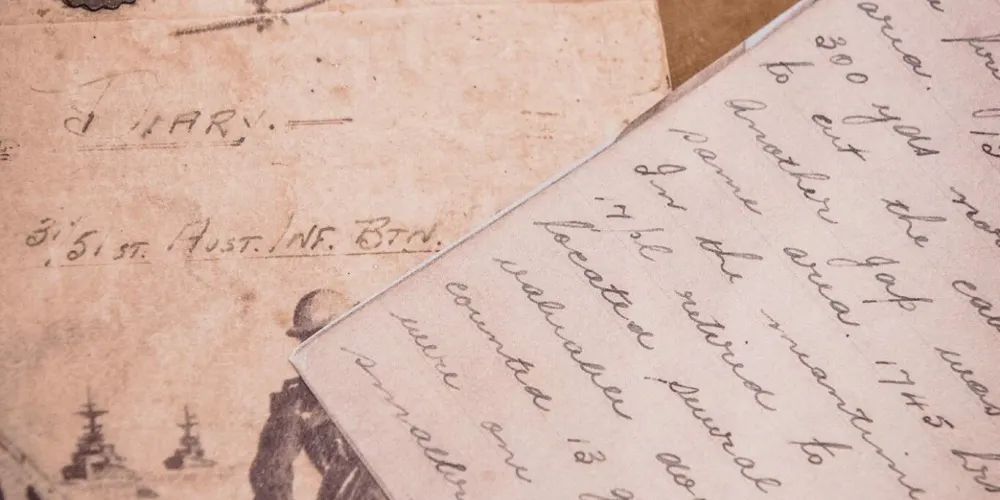 DIARY.
31/51 ST. AUST. INF. BTN.
area. 13
300 yds
to cut the
Another gap was
same area. 1745 hrs
In the meantime
17 pl retired to
located several
valuable do
counted 13
were one
smaller